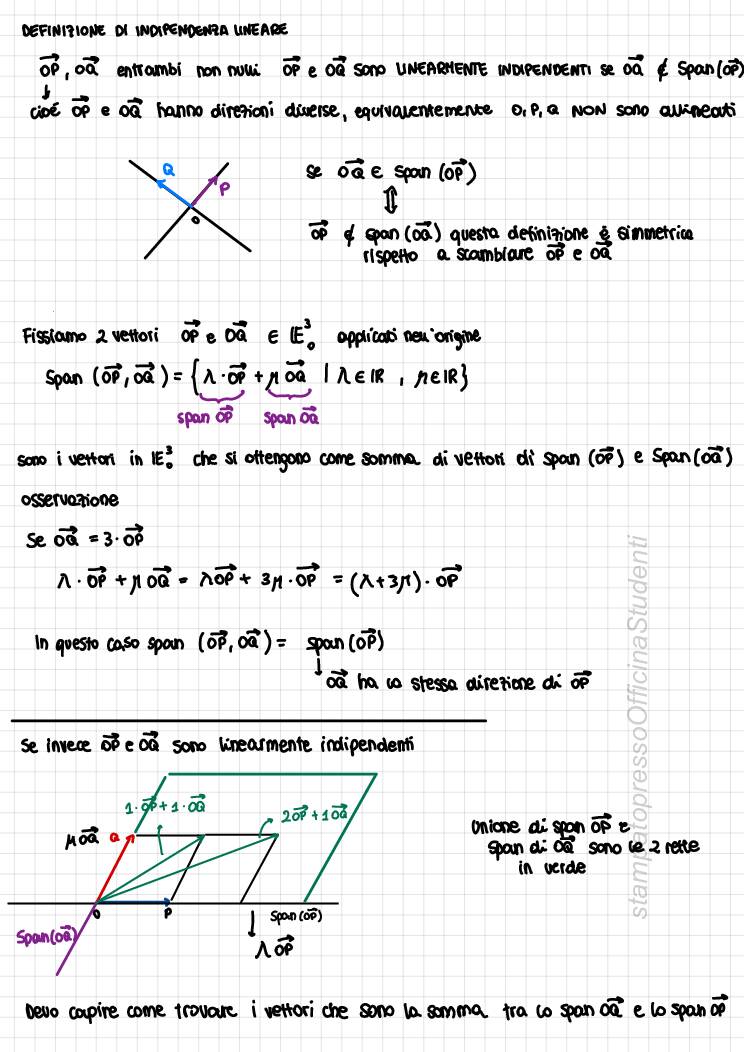 DEFINIZIONE DI INDIPENDENZA LINEARE
OP, OQ entrambi non nulli OP e OQ sono LINEARMENTE INDIPENDENTI se OQ ∉ Span(OP)
↓
cioè OP e OQ hanno direzioni diverse, equivalentemente O, P, Q NON sono allineati
Q
P
O
se OQ ∈ span (OP)
⇕
OP ∉ span (OQ) questa definizione è simmetrica
rispetto a scambiare OP e OQ
Fissiamo 2 vettori OP e OQ ∈ E³₀ applicati nell'origine
Span (OP, OQ) = {λ · OP + μ OQ | λ ∈ IR , μ ∈ IR}
span OP span OQ
sono i vettori in IE³₀ che si ottengono come somma di vettori di span (OP) e Span (OQ)
osservazione
Se OQ = 3 · OP
λ · OP + μ OQ = λOP + 3μ · OP = (λ+3μ) · OP
In questo caso span (OP, OQ) = span (OP)
↓
OQ ha la stessa direzione di OP
Se invece OP e OQ sono linearmente indipendenti
1 · OP + 1 · OQ
2OP + 1OQ
μOQ Q
O
P
Span (OP)
Span (OQ)
↓
λ OP
Unione di span OP e
span di OQ sono le 2 rette
in verde
Devo capire come trovare i vettori che sono la somma tra lo span OQ e lo span OP
stampatopressoOfficinaStudenti